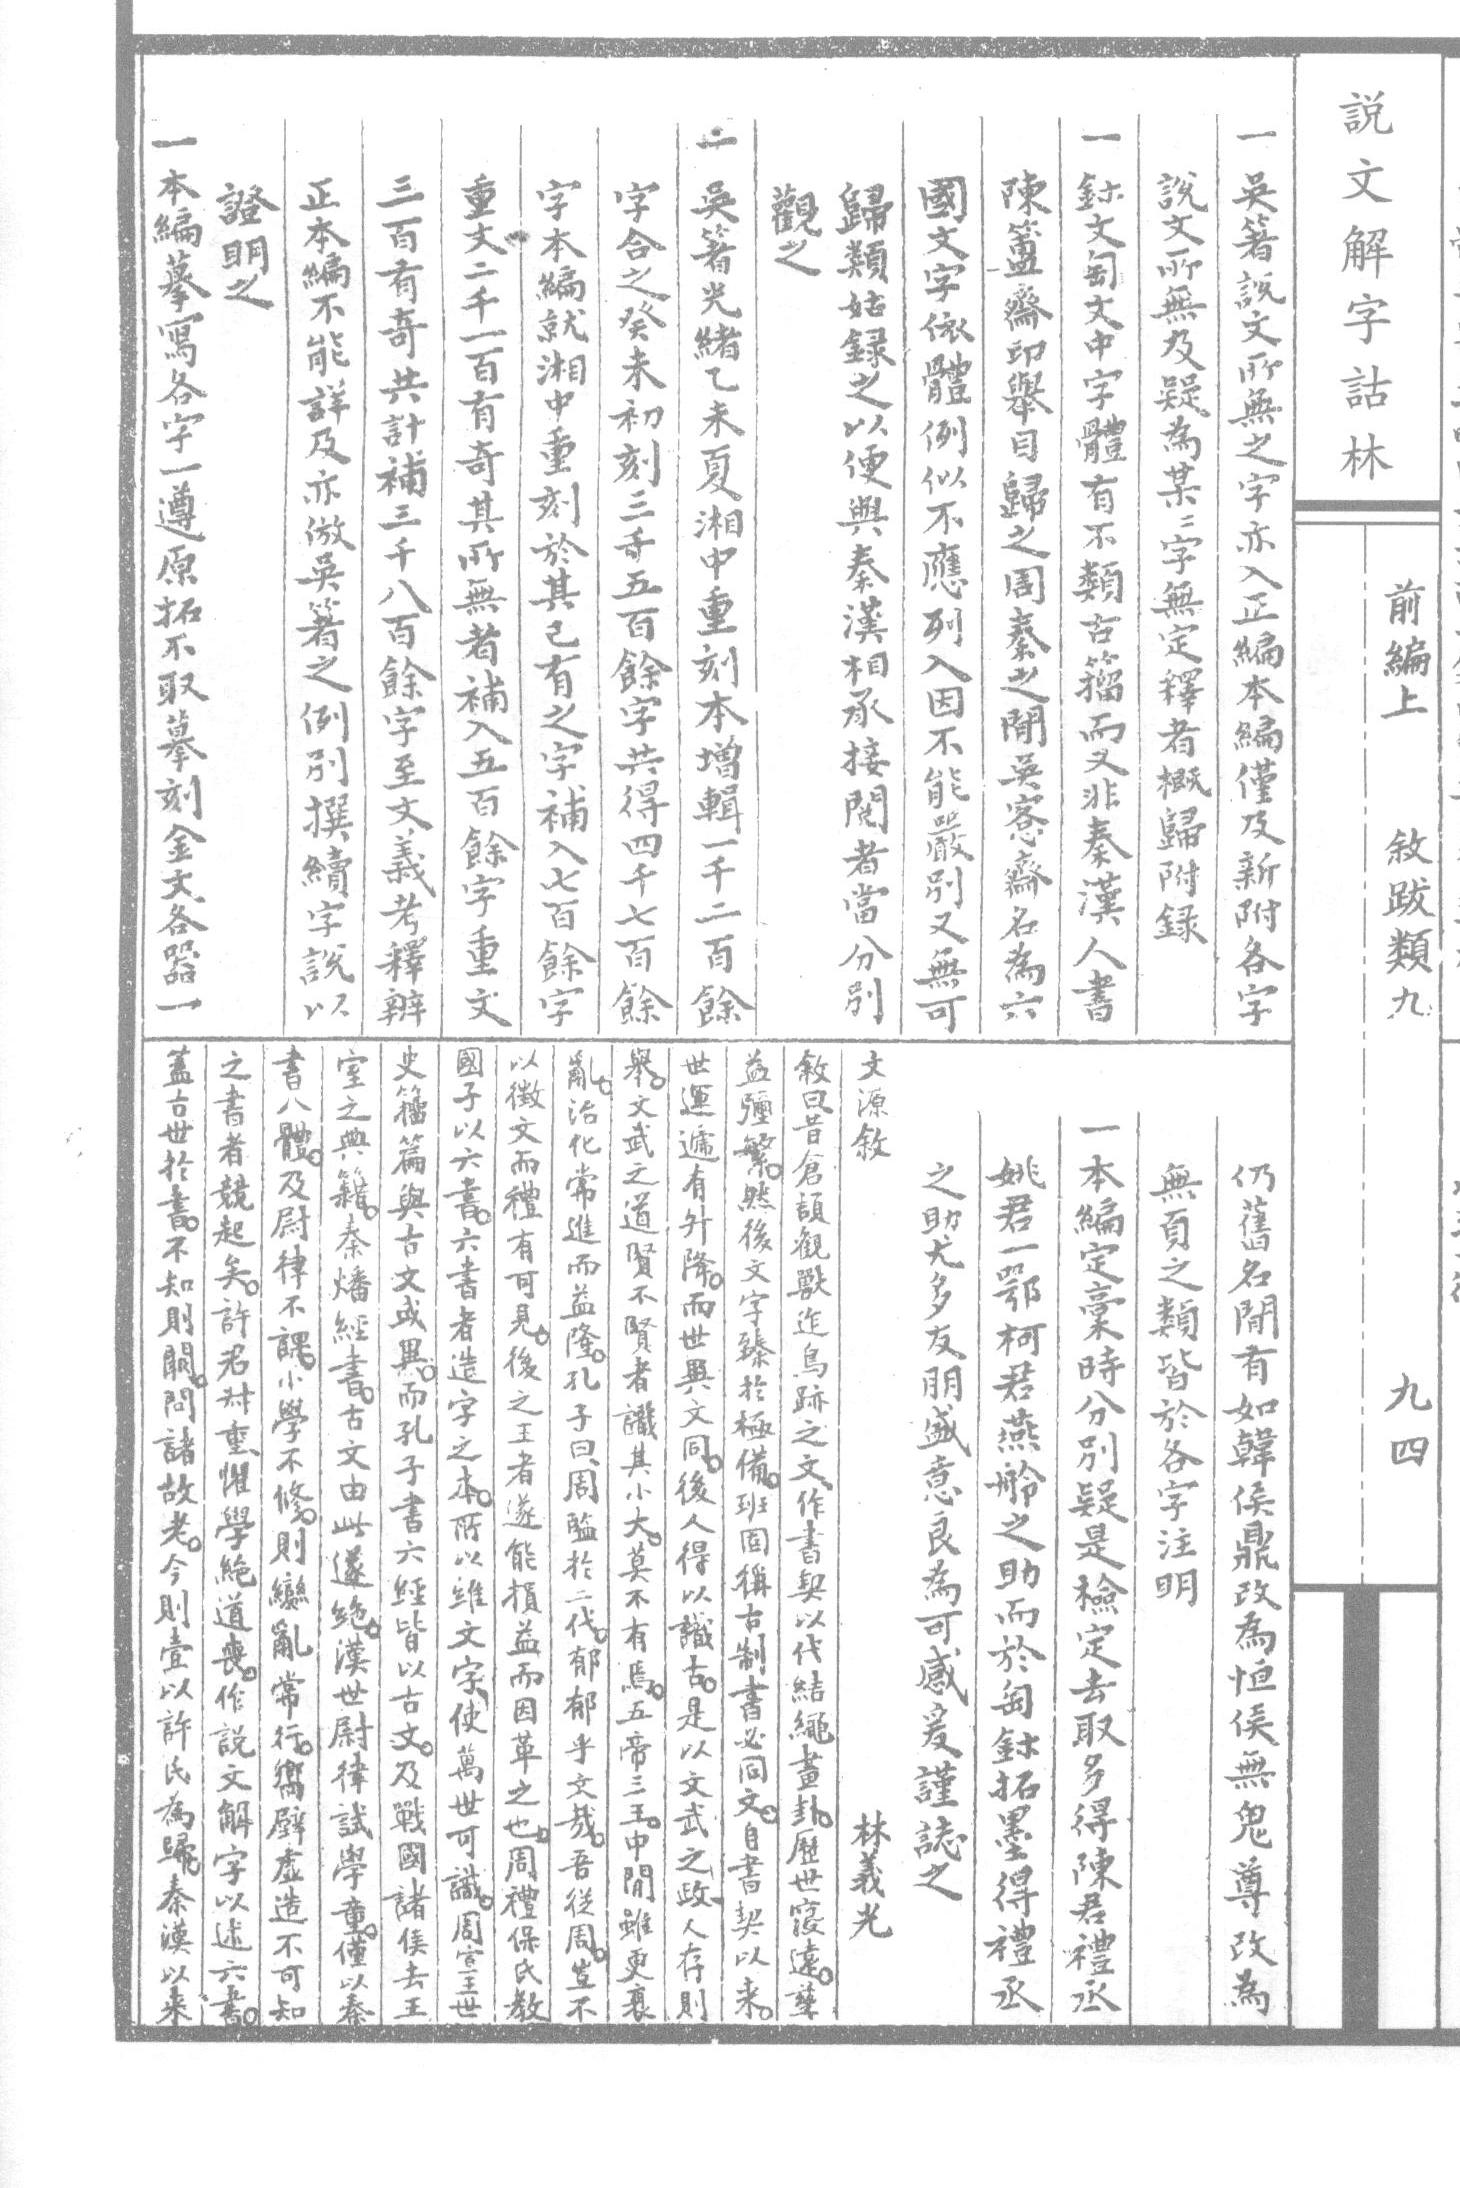 説文解字詁林
前編上 敘跋類九
九四
一吳箸說文所無之字亦入正編本編僅及新附各字
說文所無及疑為某之字無定釋者概歸附錄
一鉨文匋文中字體有不類古籀而又非秦漢人書
陳簠齋印舉目歸之周秦之閒吳愙齋名為六
國文字依體例似不應列入因不能嚴別又無可
歸類姑錄之以便與秦漢相承接閱者當分別
觀之
一吳箸光緒乙未夏湘中重刻本增輯一千二百餘
字合之癸未初刻三千五百餘字共得四千七百餘
字本編就湘中重刻於其已有之字補入七百餘字
重文二千一百有奇其所無者補入五百餘字重文
三百有奇共計補三千八百餘字至文義考釋辨
正本編不能詳及亦倣吳箸之例別撰續字說以
證明之
一本編摹寫各字一遵原拓不取摹刻金文各器一
仍舊名閒有如韓侯鼎改為恒侯無鬼尊改為
無頁之類皆於各字注明
一本編定稾時分別疑是檢定去取多得陳君禮丞
姚君一鄂柯君燕舲之助而於匋鉨拓墨得禮丞
之助尤多友朋盛意良為可感爰謹誌之
文源敘 林義光
敘曰昔倉頡觀獸迒鳥跡之文作書契以代結繩畫卦歷世寖遠孳
益彊繁然後文字臻於極備班固稱古制書必同文自書契以來
世運遞有升降而世異文同後人得以識古是以文武之政人存則
舉文武之道賢不賢者識其小大莫不有焉五帝三王中閒雖更衰
亂治化常進而益隆孔子曰周監於二代郁郁乎文哉吾從周豈不
以徵文而禮有可見後之王者遂能損益而因革之也周禮保氏教
國子以六書六書者造字之本所以維文字使萬世可識周宣王世
史籀篇與古文或異而孔子書六經皆以古文及戰國諸侯去王
室之典籍秦燔經書古文由此遂絕漢世尉律試學童僅以秦
書八體及尉律不課小學不修則變亂常行嚮壁虛造不可知
之書者競起矣許君叔重懼學絕道喪作說文解字以述六書
蓋古世於書不知則闕問諸故老今則壹以許氏為歸秦漢以來